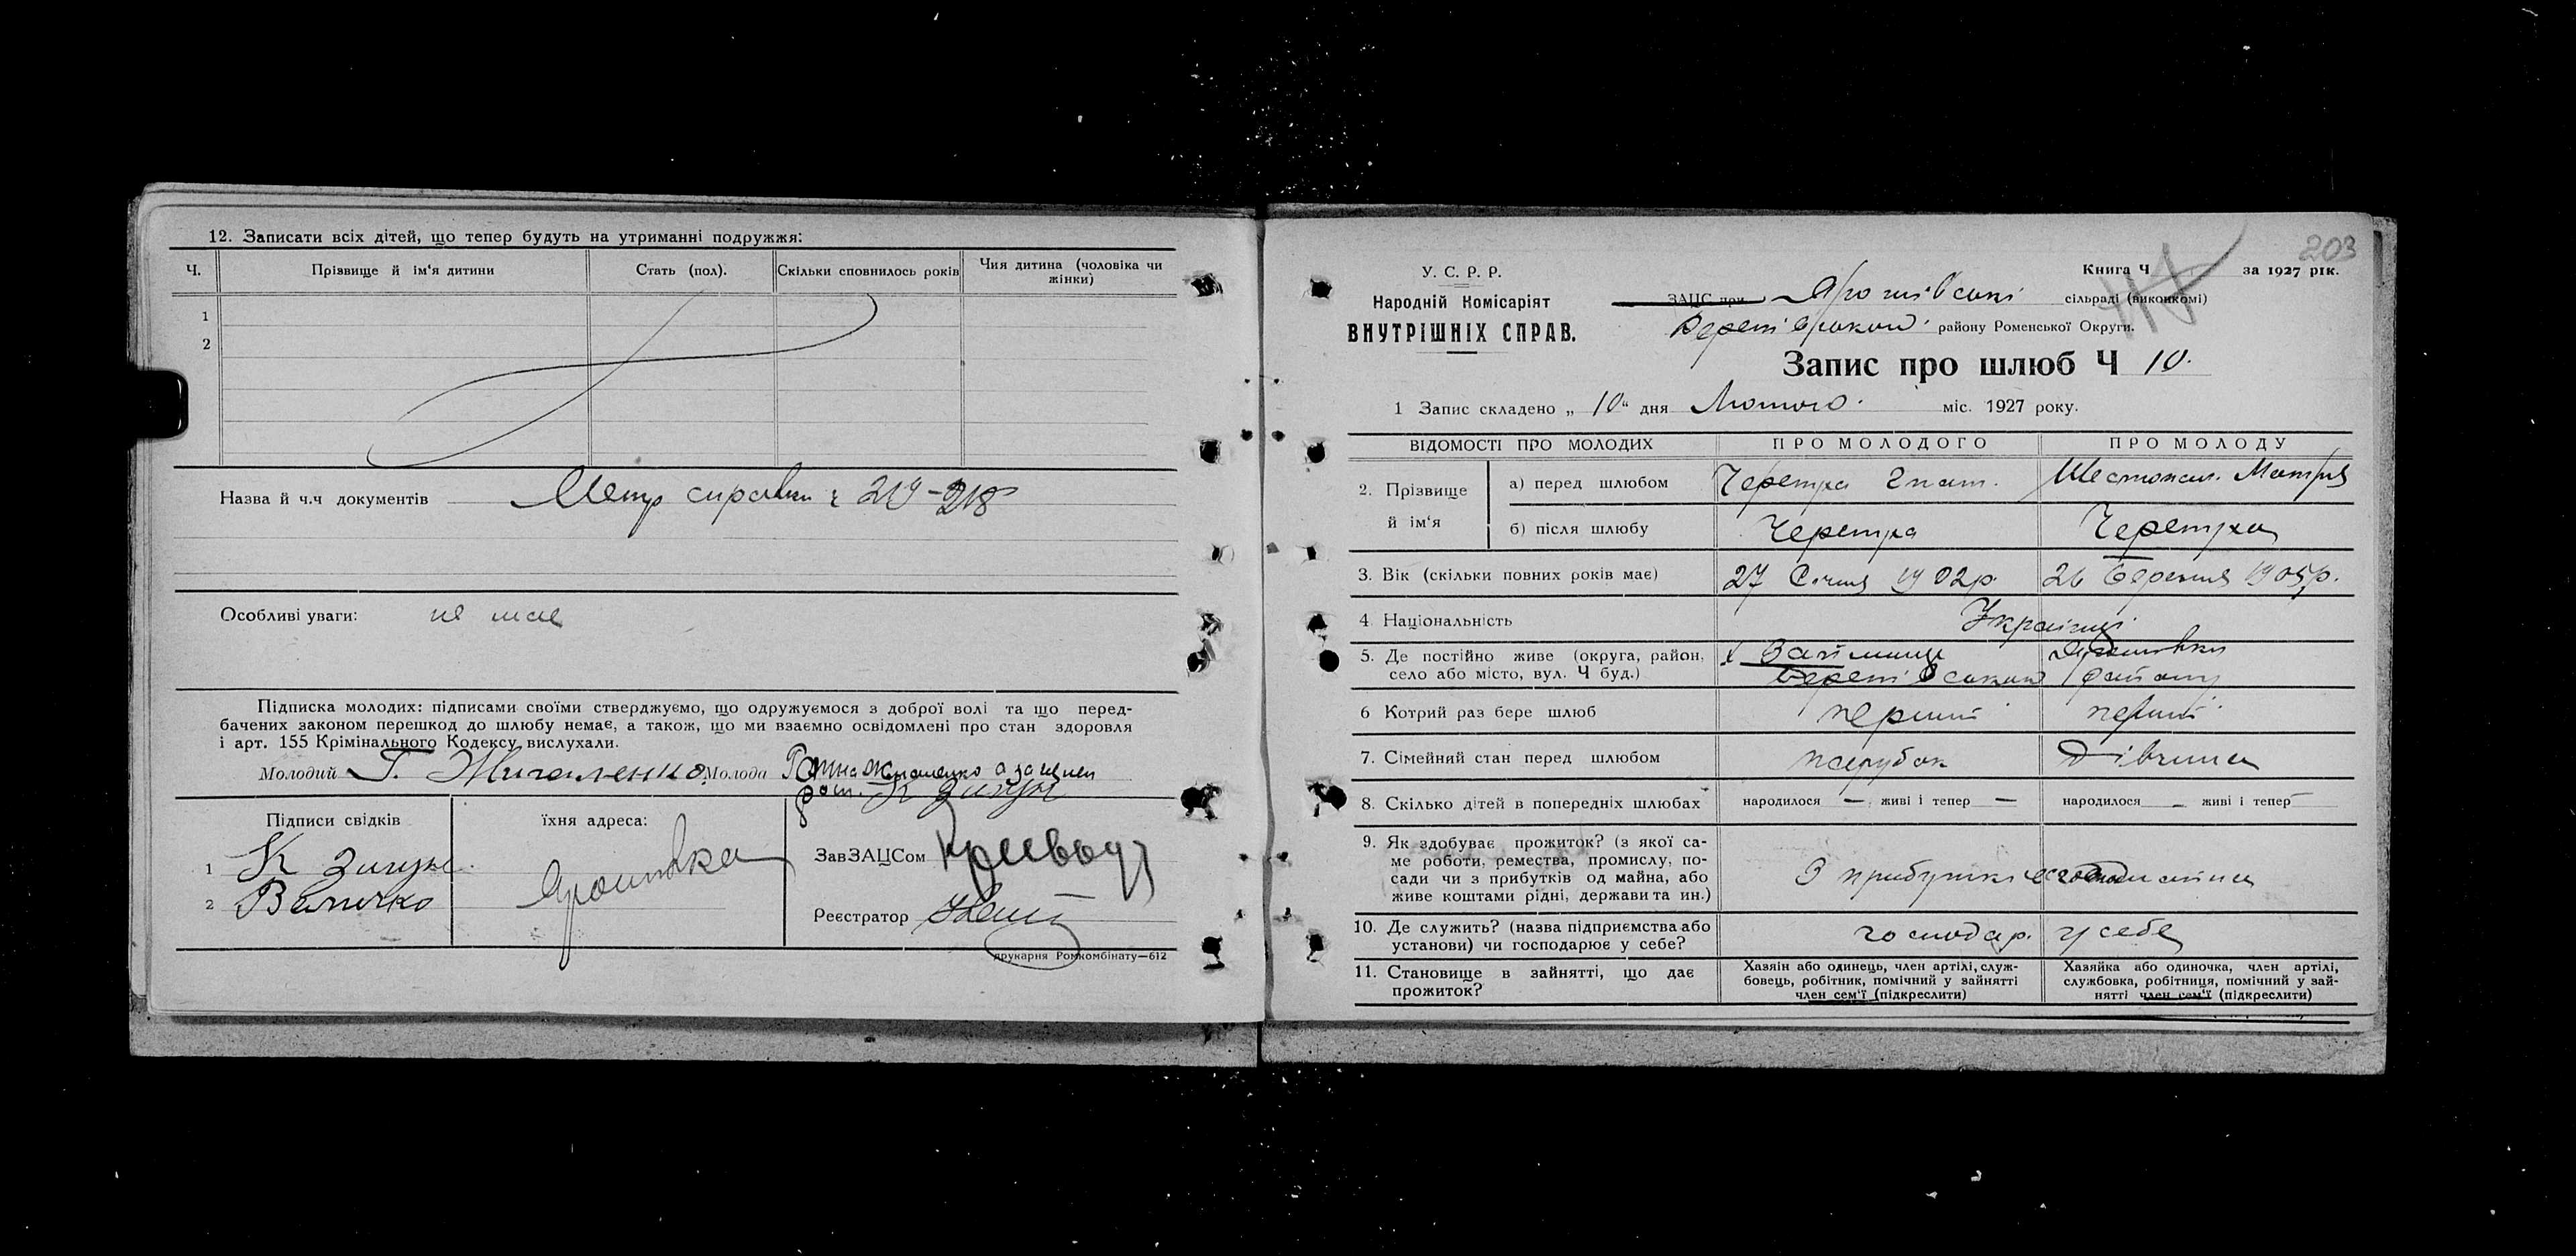 12. Записати всіх дітей, що тепер будуть на утриманні подружжя:
Ч. Прізвище й ім'я дитини Стать (пол). Скільки сповнилось років Чия дитина (чоловіка чи жінки)
1
2
Назва й ч.ч документів Метр справки ч 219-218
Особливі уваги: не має
Підписка молодих: підписами своїми стверджуємо, що одружуємося з доброї волі та що перед-
бачених законом перешкод до шлюбу немає, а також, що ми взаємно освідомлені про стан здоровля
і арт. 155 Крімінального Кодексу вислухали.
Молодий Г. Жигаленко Молода
Підписи свідків їхня адреса:
1 К
2 Величко
Ярошівка
ЗавЗАЦСом
Реєстратор
друкарня Ромкомбінату—612
203
У. С. Р. Р.
Народній Комісаріят
ВНУТРІШНІХ СПРАВ.
Книга Ч за 1927 рік.
ЗАЦС при Ярошівські сільраді (виконкомі)
району Роменської Округи.
Запис про шлюб Ч 10.
1 Запис складено „ 10 “ дня Лютого міс. 1927 року.
ВІДОМОСТІ ПРО МОЛОДИХ ПРО МОЛОДОГО ПРО МОЛОДУ
2. Прізвище й ім'я
а) перед шлюбом Черетха Гнат.
б) після шлюбу Черетха Черетха
3. Вік (скільки повних років має) 27 Січня 1902р. 26 Березня 1905р.
4 Національність Українці
5. Де постійно живе (округа, район,
село або місто, вул. Ч буд.) району
6 Котрий раз бере шлюб перший перший
7. Сімейний стан перед шлюбом парубок дівчина
8. Скілько дітей в попередніх шлюбах народилося — живі і тепер — народилося — живі і тепер —
9. Як здобуває прожиток? (з якої са-
ме роботи, ремества, промислу, по-
сади чи з прибутків од майна, або
живе коштами рідні, держави та ин.)
З прибутків
10. Де служить? (назва підприємства або
установи) чи господарює у себе?
господар. у себе
11. Становище в зайнятті, що дає
прожиток?
Хазяін або одинець, член артілі, служ-
бовець, робітник, помічний у зайнятті
член сем'ї (підкреслити)
Хазяйка або одиночка, член артілі,
службовка, робітниця, помічний у зай-
нятті член сем'ї (підкреслити)